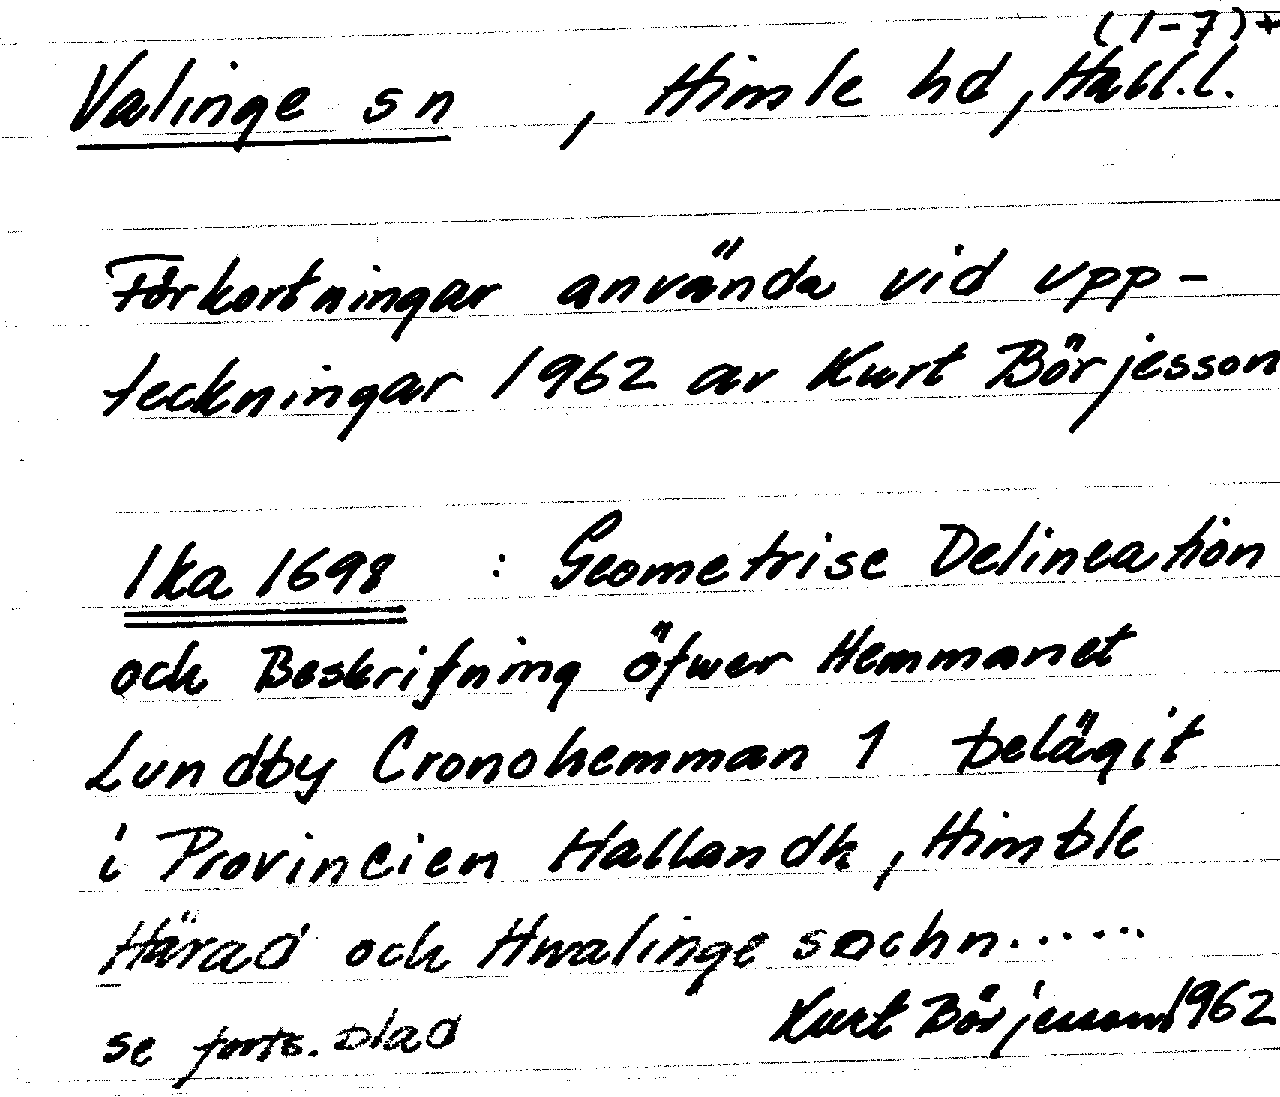 (1-7)+
Valinge sn, Himle hd, Hall.l.
Förkortningar använda vid upp-
teckningar 1962 av Kurt Börjesson
lka 1698 : Geometrise Delineation
och Beskrifning öfwer Hemmanet
Lundby Cronohemman 1 belägit
i Provincien Hallandh, Himble
Härad och Hwalinge sochn......
se forts. blad Kurt Börjesson 1962